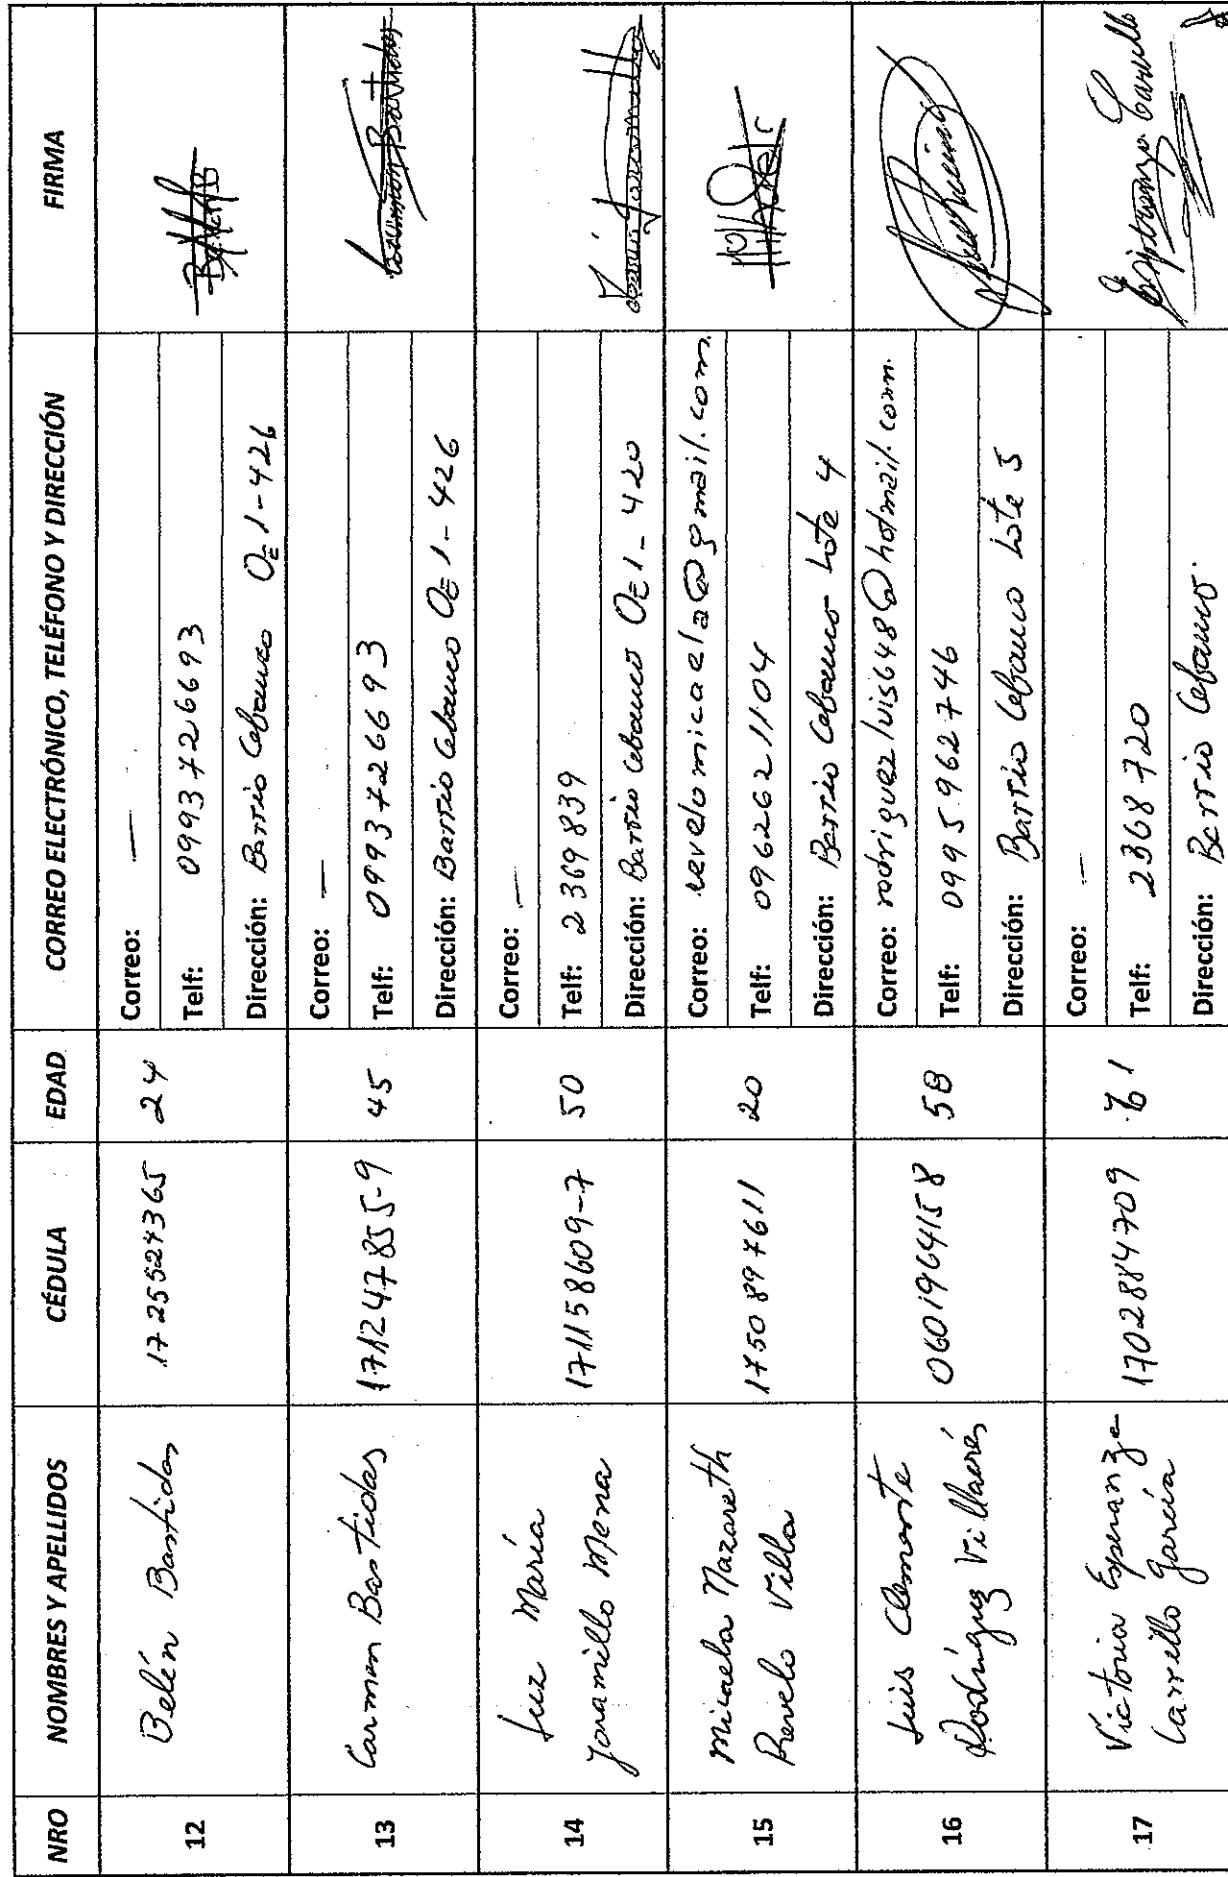 NRO NOMBRES Y APELLIDOS CÉDULA EDAD CORREO ELECTRÓNICO, TELÉFONO Y DIRECCIÓN FIRMA
12 Belén Bastidas 1725524365 24
Correo: —
Telf: 0993726693
Dirección: Barrio Cebauco OE 1-426
13 Carmen Bastidas 171247855-9 45
Correo: —
Telf: 0993726693
Dirección: Barrio Cebauco OE 1-426
Carmen Bastidas
14 Luz María
Jaramillo Mena 171158609-7 50
Correo: —
Telf: 2369839
Dirección: Barrio Cebauco OE 1-420
15 Micaela Nazareth
Revelo Villa 1750897611 20
Correo: revelomicaela@gmail.com.
Telf: 0962621104
Dirección: Barrio Cebauco Lote 4
16 Luis Clemente
Rodríguez Villacrés 0601964158 58
Correo: rodriguezluis648@hotmail.com.
Telf: 0995962746
Dirección: Barrio Cebauco Lote 5
17 Victoria Esperanza
Carrillo García 1702884709 61
Correo: —
Telf: 2368720
Dirección: Barrio Cebauco.
Esperanza Carrillo